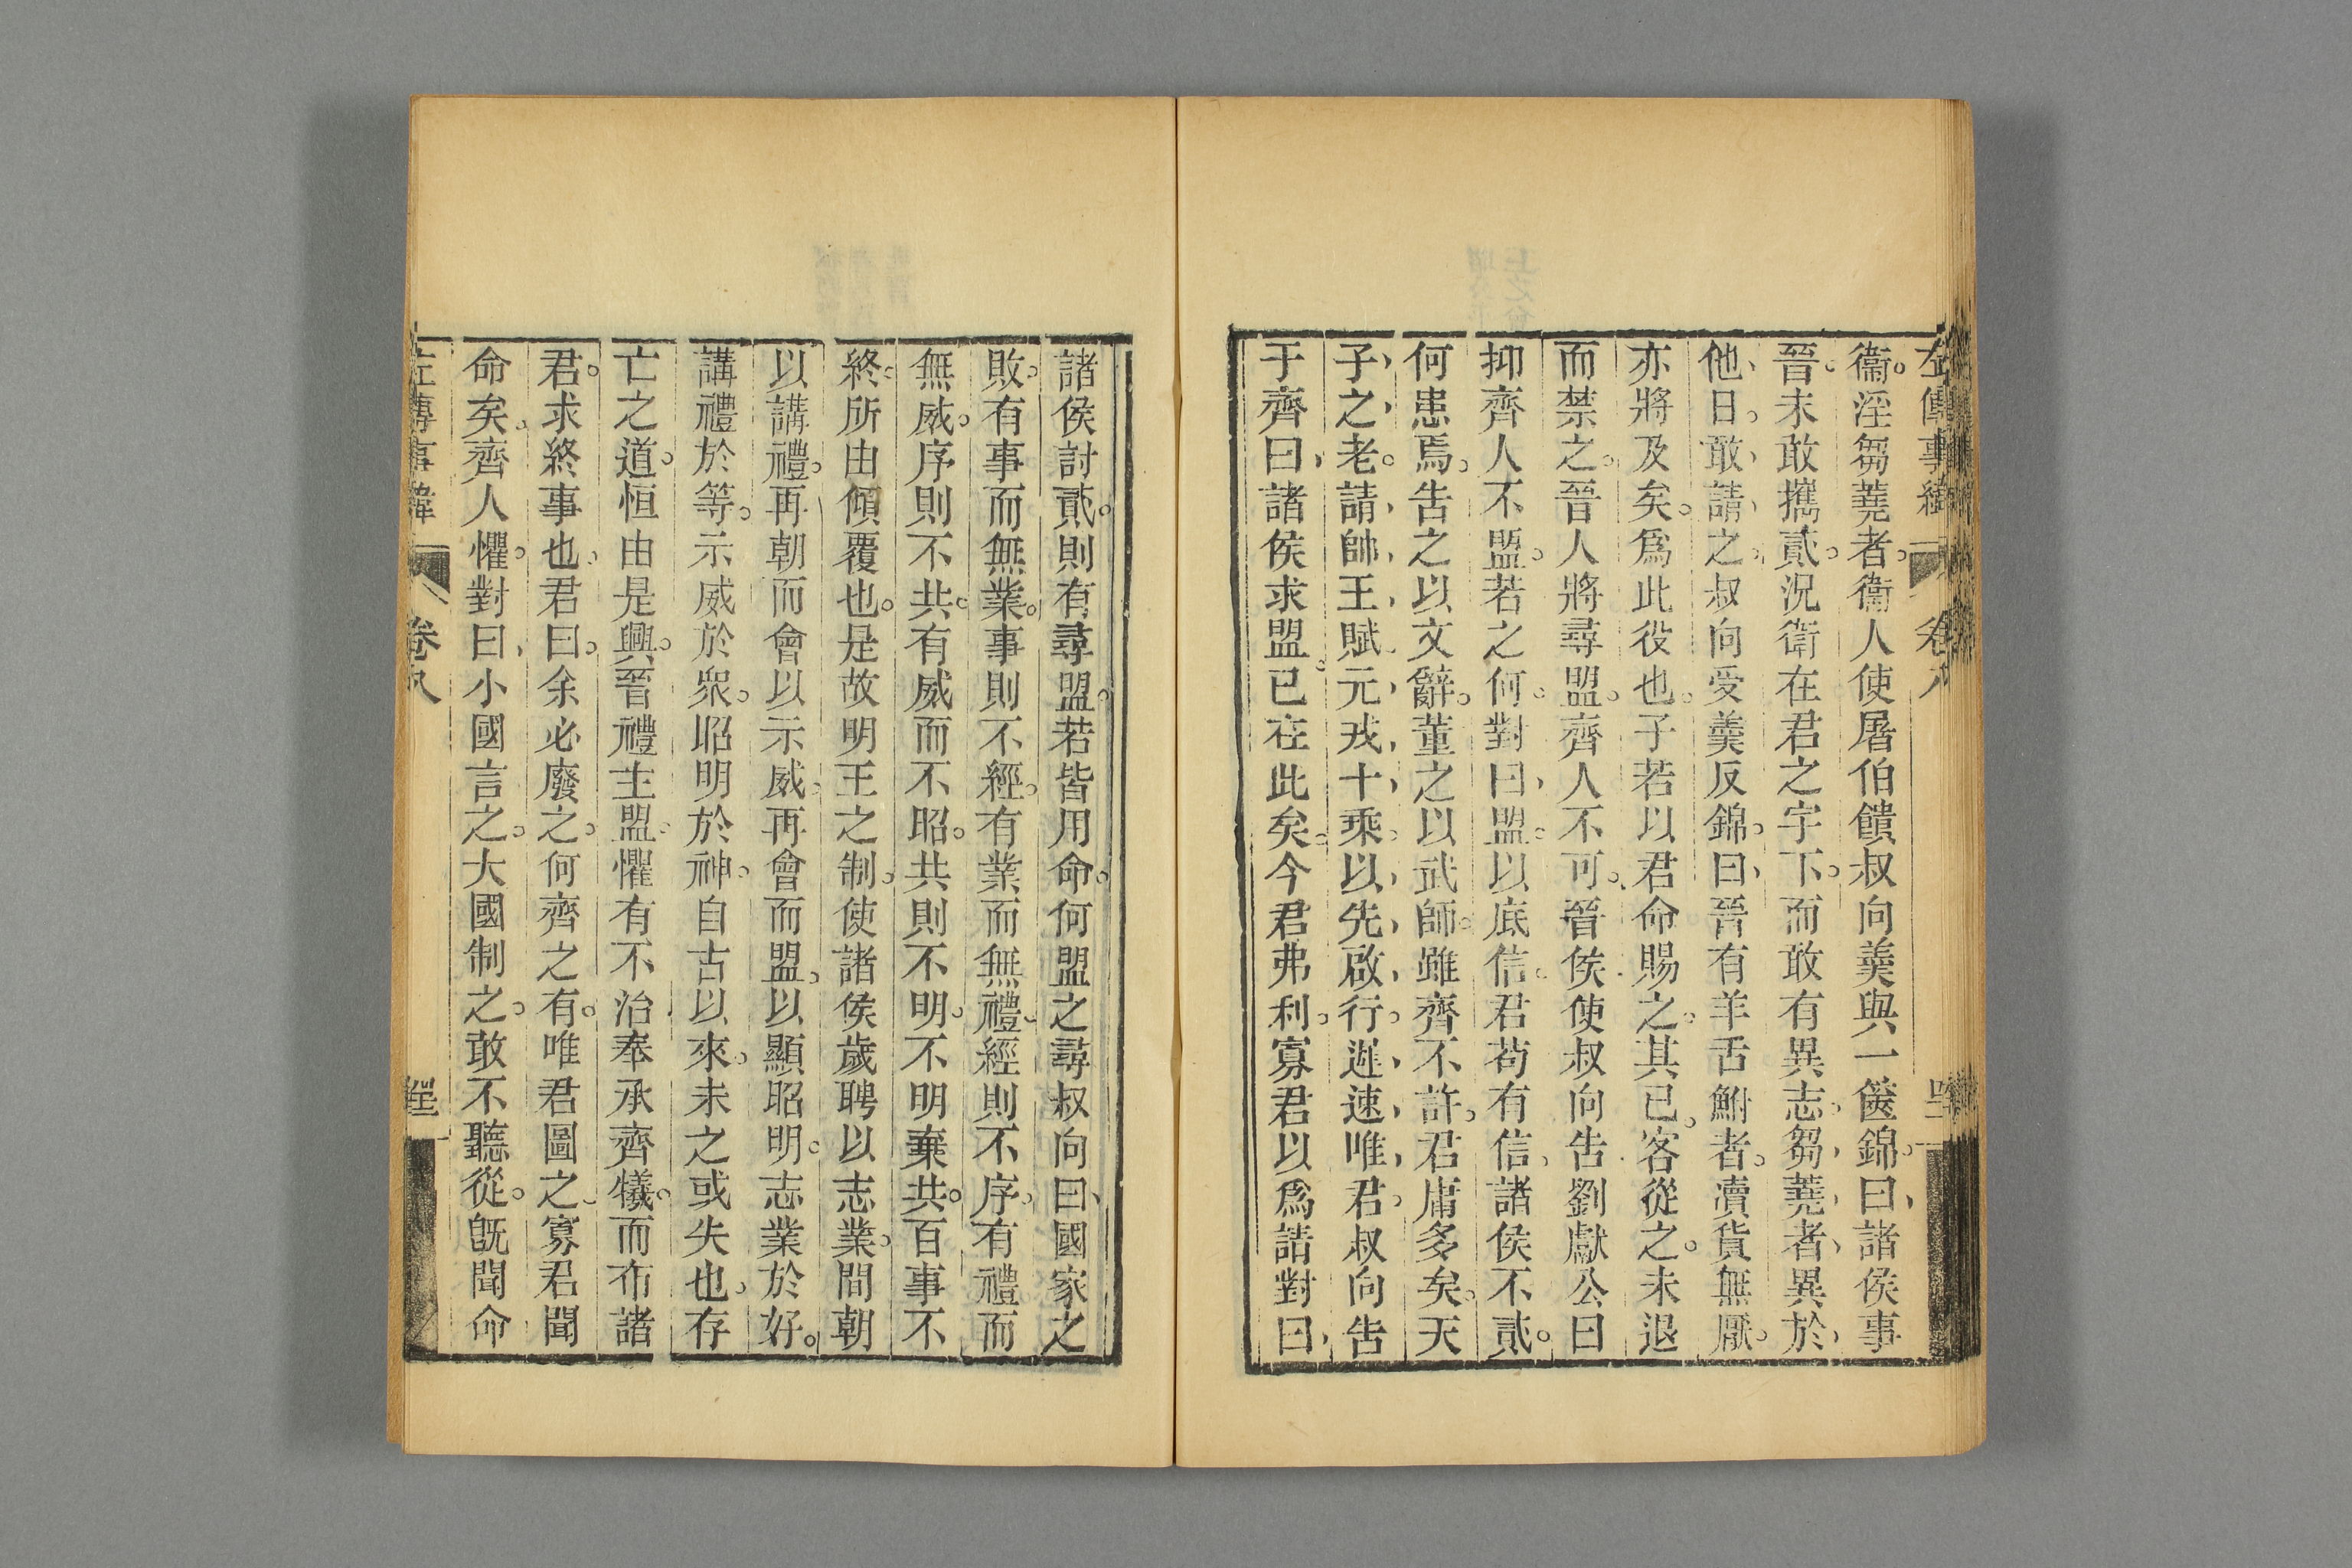 左傳事緯 卷八
衞淫芻蕘者衞人使屠伯饋叔向羹與一篋錦曰諸侯事
晉未敢攜貳況衞在君之宇下而敢有異志芻蕘者異於
他日敢請之叔向受羹反錦曰晉有羊舌鮒者瀆貨無厭
亦將及矣爲此役也子若以君命賜之其已客從之未退
而禁之晉人將尋盟齊人不可晉侯使叔向告劉獻公曰
抑齊人不盟若之何對曰盟以底信君苟有信諸侯不貳
何患焉告之以文辭董之以武師雖齊不許君庸多矣天
子之老請帥王賦元戎十乘以先啟行遲速唯君叔向告
于齊曰諸侯求盟已在此矣今君弗利寡君以爲請對曰
諸侯討貳則有尋盟若皆用命何盟之尋叔向曰國家之
敗有事而無業事則不經有業而無禮經則不序有禮而
無威序則不共有威而不昭共則不明不明棄共百事不
終所由傾覆也是故明王之制使諸侯歲聘以志業間朝
以講禮再朝而會以示威再會而盟以顯昭明志業於好
講禮於等示威於衆昭明於神自古以來未之或失也存
亡之道恒由是興晉禮主盟懼有不治奉承齊犧而布諸
君求終事也君曰余必廢之何齊之有唯君圖之寡君聞
命矣齊人懼對曰小國言之大國制之敢不聽從旣聞命
左傳事緯 卷八